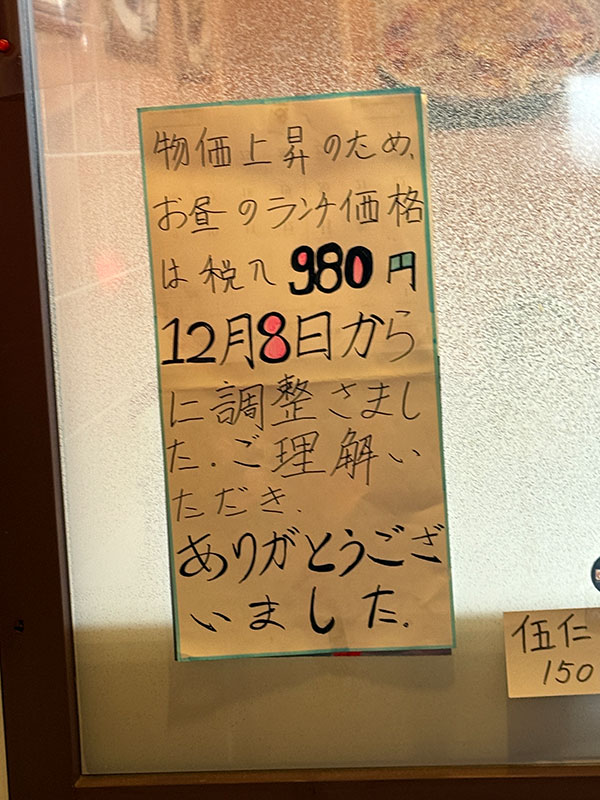 物価上昇のため、
お昼のランチ価格
は税入980円
12月8日から
に調整さまし
た.ご理解い
ただき.
ありがとうござ
いました.
伍仁
150